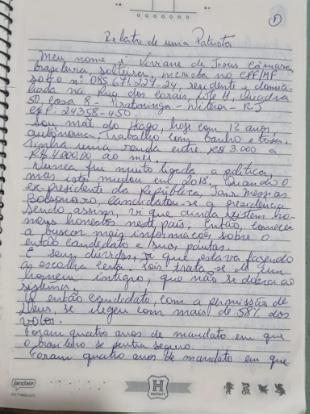 1
Relato de uma Patriota
Meu nome é Viviane de Jesus Câmara,
brasileira, solteira, inscrita no CPF/MF
sob o nº 085.671.227-24, residente e domici
liada na Rua dos Corais, Lote 4, Quadra
50, casa 8 - Piratininga - Niterói - RJ
CEP: 24358-450.
Sou mãe do Hiago, hoje com 12 anos,
autônoma. Trabalho com banho e tosa.
Tinha uma renda entre R$ 3.000 a
R$ 4.000,00 ao mês.
Nunca fui muito ligada a política,
mas isto mudou em 2018. Quando o
ex-presidente da República, Jair Messias
Bolsonaro, candidatou-se a presidência.
Sendo assim, vi que ainda existem ho
mens honestos neste país. Então, comecei
a buscar mais informações sobre o
então candidato e suas pautas.
E sem dúvidas, vi que estava fazendo
a escolha certa. Pois trata-se de um
homem íntegro, que não se dobra ao
sistema.
O então candidato, com a permissão de
Deus, se elegeu com mais de 58% dos
votos.
Foram quatro anos de mandato em que
o brasileiro se sentia seguro.
Foram quatro anos de mandato em que
jandaia
H